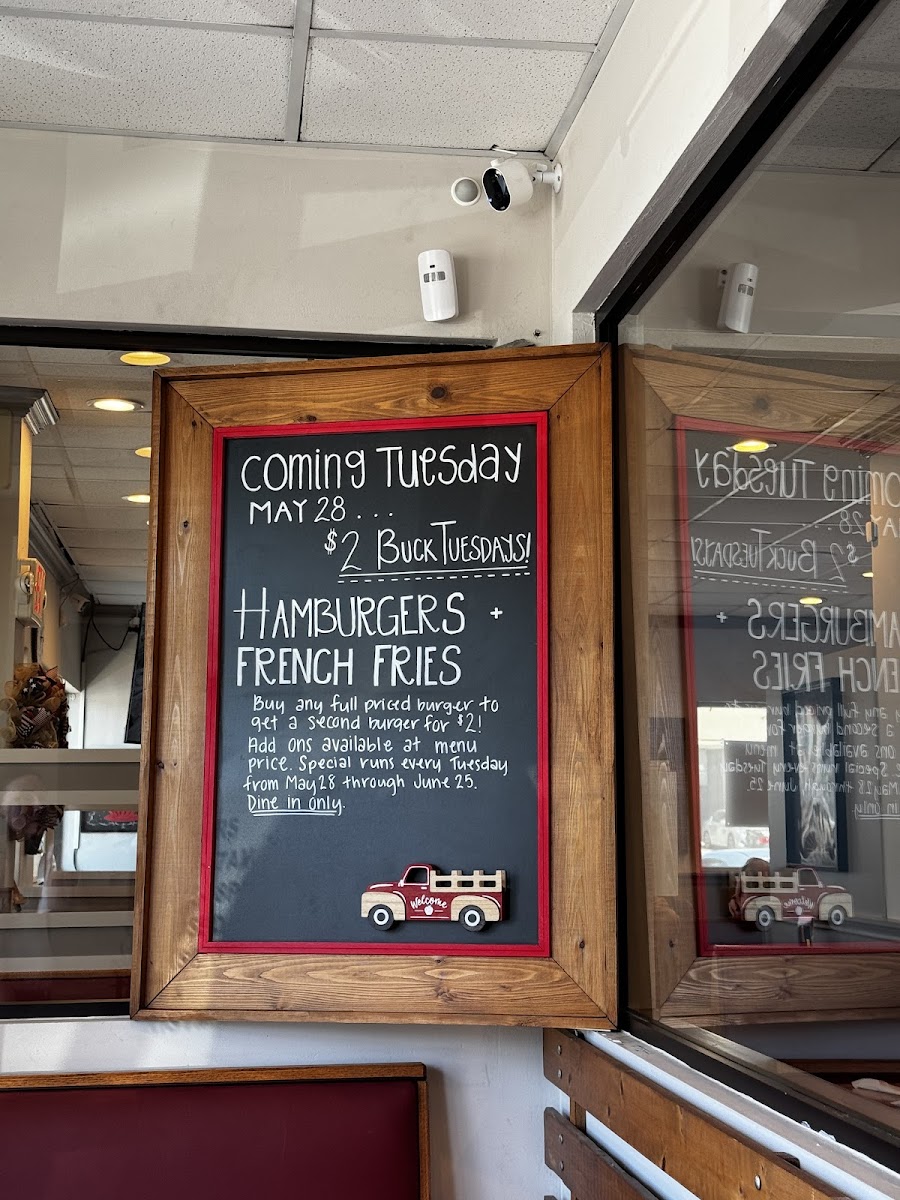 Coming Tuesday
MAY 28 ...
$2 Buck Tuesdays!
Hamburgers +
French Fries
Buy any full priced burger to
get a second burger for $2!
Add ons available at menu
price. Special runs every Tuesday
from May 28 through June 25.
Dine in only.
Welcome